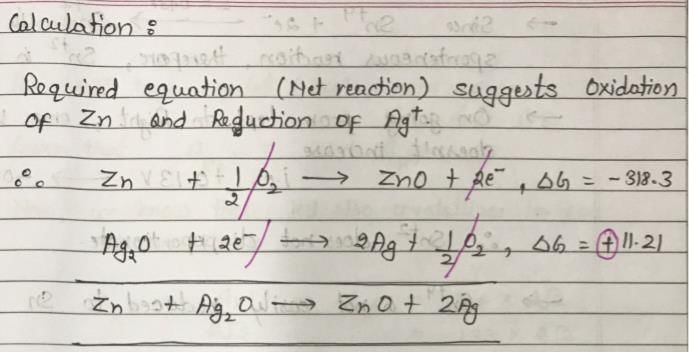 Calculation :
Required equation (Net reaction) suggests Oxidation
of Zn and Reduction of Ag⁺.
∴ Zn + 1/2 O₂ → ZnO + 2e⁻, ΔG = -318.3
Ag₂O + 2e⁻ → 2Ag + 1/2 O₂, ΔG = +11.21
Zn + Ag₂O → ZnO + 2Ag